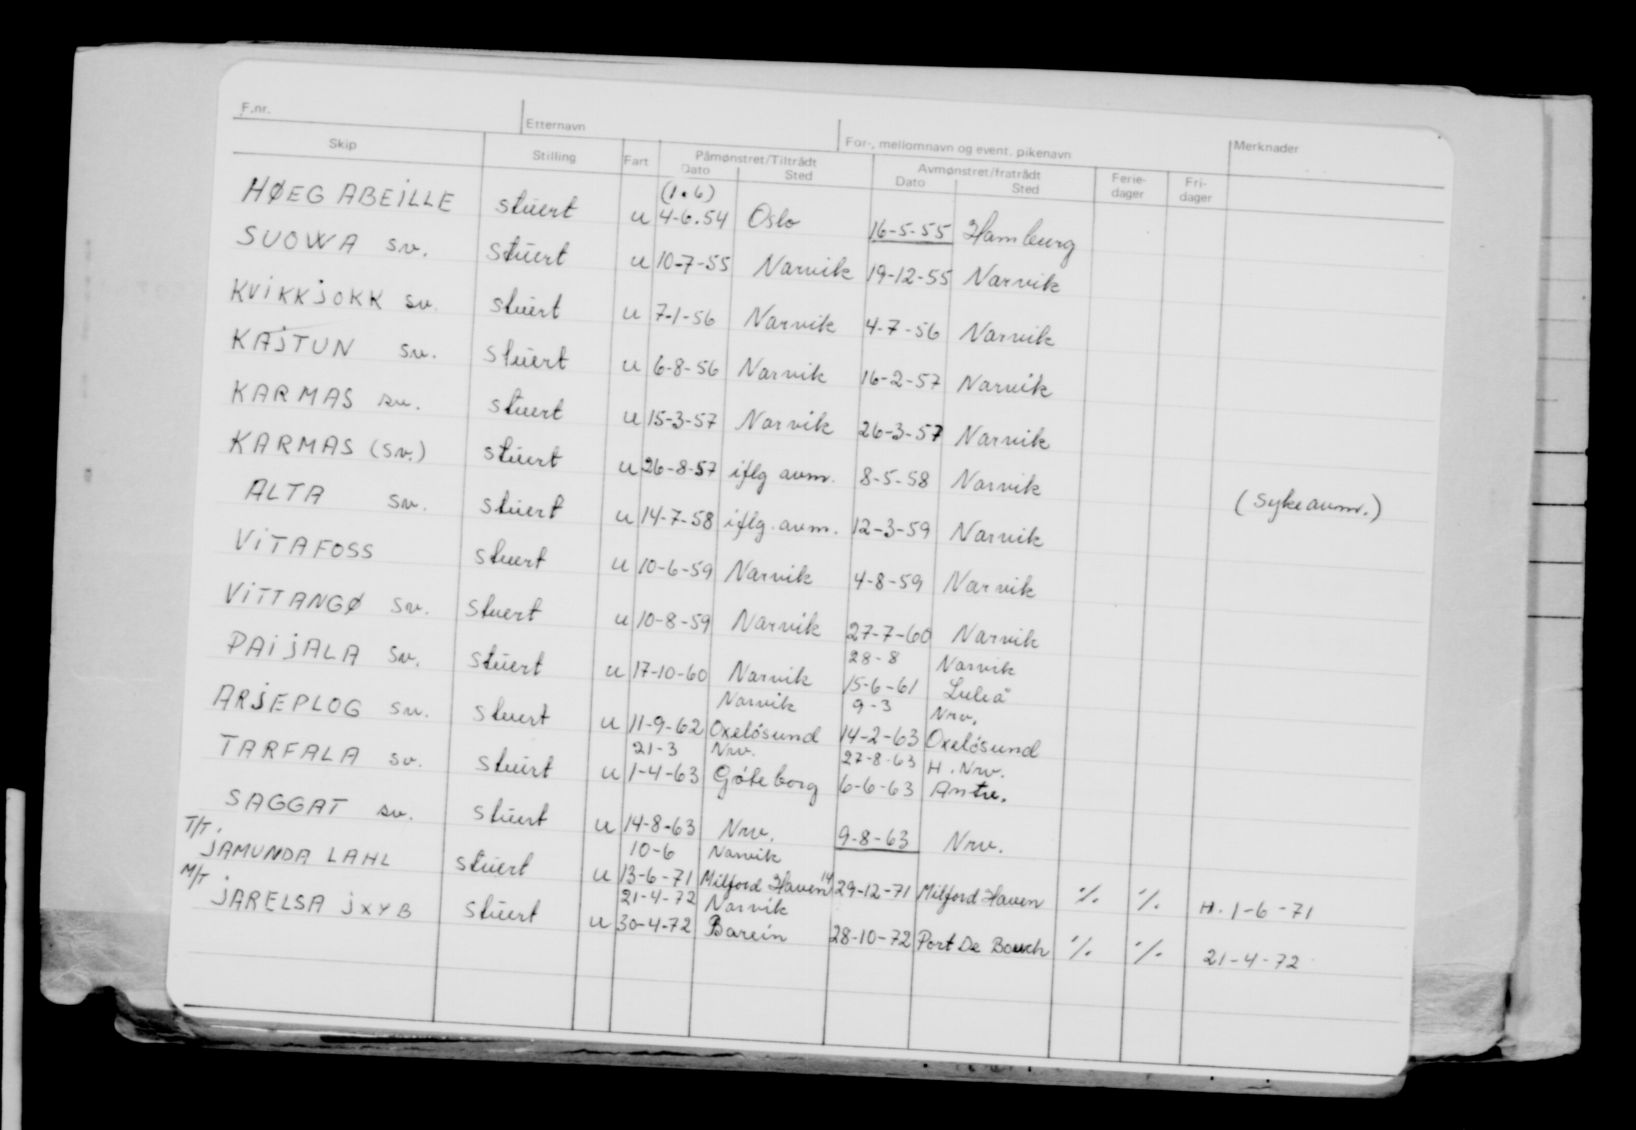 F.nr. Etternavn For-, mellomnavn og event. pikenavn Merknader
Skip Stilling Fart Påmønstret/Tiltrådt Avmønstret/fratrådt Ferie- Fri-
Dato Sted Dato Sted dager dager
(1.6)
HØEG ABEILLE stuert u 4-6.54 Oslo 16-5-55 Hamburg
SUOWA sv. stuert u 10-7-55 Narvik 19-12-55 Narvik
KVIKKJOKK sv. stuert u 7-1-56 Narvik 4-7-56 Narvik
KAJTUN sv. stuert u 6-8-56 Narvik 16-2-57 Narvik
KARMAS sv. stuert u 15-3-57 Narvik 26-3-57 Narvik
KARMAS (sv.) stuert u 26-8-57 iflg avm. 8-5-58 Narvik (sykeavm.)
ALTA sv. stuert u 14-7-58 iflg. avm. 12-3-59 Narvik
VITAFOSS stuert u 10-6-59 Narvik 4-8-59 Narvik
VITTANGØ sv. stuert u 10-8-59 Narvik 27-7-60 Narvik
28-8 Narvik
PAIJALA sv. stuert u 17-10-60 Narvik 15-6-61 Luleå
Narvik 9-3 Nrv.
ARJEPLOG sv. stuert u 11-9-62 Oxelösund 14-2-63 Oxelösund
21-3 Nrv. 27-8-63 H. Nrv.
TARFALA sv. stuert u 1-4-63 Göteborg 6-6-63 Antw.
SAGGAT sv. stuert u 14-8-63 Nrv. 9-8-63 Nrv.
T/T. 10-6 Narvik
JAMUNDA LAHL stuert u 13-6-71 Milford Haven 14 29-12-71 Milford Haven % % H. 1-6-71
M/T 21-4-72 Narvik
JARELSA JXYB stuert u 30-4-72 Barein 28-10-72 Port De Bouch % % 21-4-72